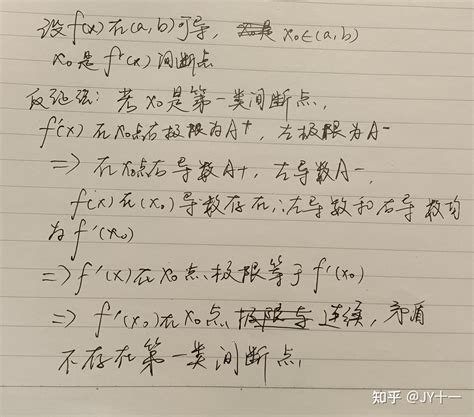 设 f(x) 在(a,b)可导, x₀∈(a,b)
x₀是 f'(x) 间断点
反证法: 若 x₀是第一类间断点,
f'(x) 在x₀点右极限为A+, 左极限为A-
=> 在x₀点右导数A+, 左导数A-,
f(x)在(x₀)导数存在,∴左导数和右导数均
为 f'(x₀)
=> f'(x)在x₀点,极限等于f'(x₀)
=> f'(x₀)在x₀点, 连续, 矛盾
不存在第一类间断点,
知乎 @JY十一